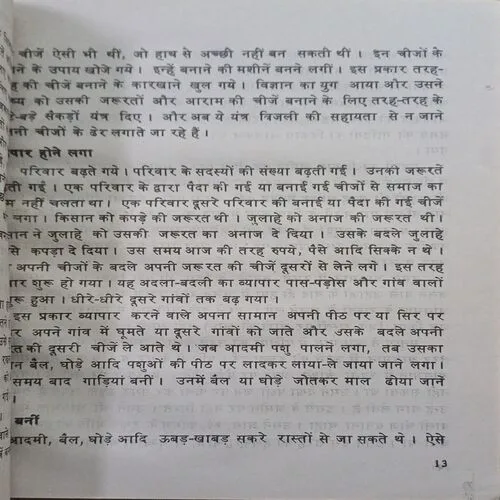 चीजें ऐसी भी थीं, जो हाथ से अच्छी नहीं बन सकती थीं। इन चीजों के
ने के उपाय खोजे गये। इन्हें बनाने की मशीनें बनने लगीं। इस प्रकार तरह-
की चीजें बनाने के कारखाने खुल गये। विज्ञान का युग आया और उसने
य को उसकी जरूरतों और आराम की चीजें बनाने के लिए तरह-तरह के
-बड़े सैकड़ों यंत्र दिए। और अब ये यंत्र बिजली की सहायता से न जाने
नी चीजों के ढेर लगाते जा रहे हैं।
पार होने लगा
परिवार बढ़ते गये। परिवार के सदस्यों की संख्या बढ़ती गई। उनकी जरूरतें
ती गईं। एक परिवार के द्वारा पैदा की गई या बनाई गई चीजों से समाज का
नहीं चलता था। एक परिवार दूसरे परिवार की बनाई या पैदा की गई चीजें
लगा। किसान को कपड़े की जरूरत थी। जुलाहे को अनाज की जरूरत थी।
ान ने जुलाहे को उसकी जरूरत का अनाज दे दिया। उसके बदले जुलाहे
से कपड़ा दे दिया। उस समय आज की तरह रुपये, पैसे आदि सिक्के न थे।
अपनी चीजों के बदले अपनी जरूरत की चीजें दूसरों से लेने लगे। इस तरह
ार शुरू हो गया। यह अदला-बदली का व्यापार पास-पड़ोस और गांव वालों
रू हुआ। धीरे-धीरे दूसरे गांवों तक बढ़ गया।
इस प्रकार व्यापार करने वाले अपना सामान अपनी पीठ पर या सिर पर
र अपने गांव में घूमते या दूसरे गांवों को जाते और उसके बदले अपनी
त की दूसरी चीजें ले आते थे। जब आदमी पशु पालने लगा, तब उसका
ान बैल, घोड़े आदि पशुओं की पीठ पर लादकर लाया-ले जाया जाने लगा।
समय बाद गाड़ियां बनीं। उनमें बैल या घोड़े जोतकर माल ढोया जाने
।
बनीं
आदमी, बैल, घोड़े आदि ऊबड़-खाबड़ सकरे रास्तों से जा सकते थे। ऐसे
13